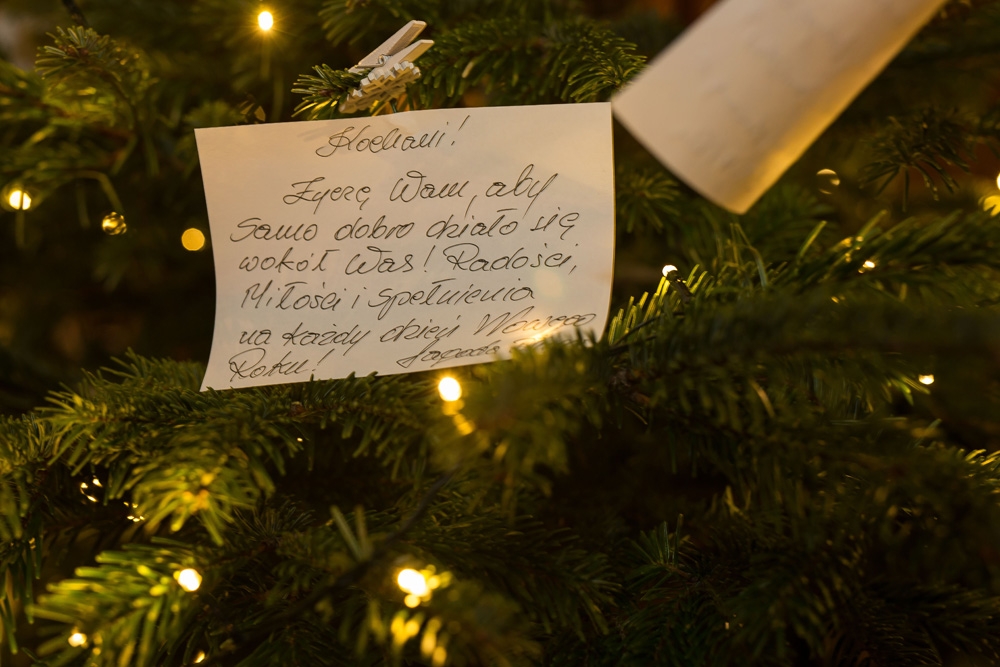 Kochani!
Życzę Wam, aby
samo dobro działo się
wokół Was! Radości,
Miłości i spełnienia
na każdy dzień Nowego
Roku! Jagoda